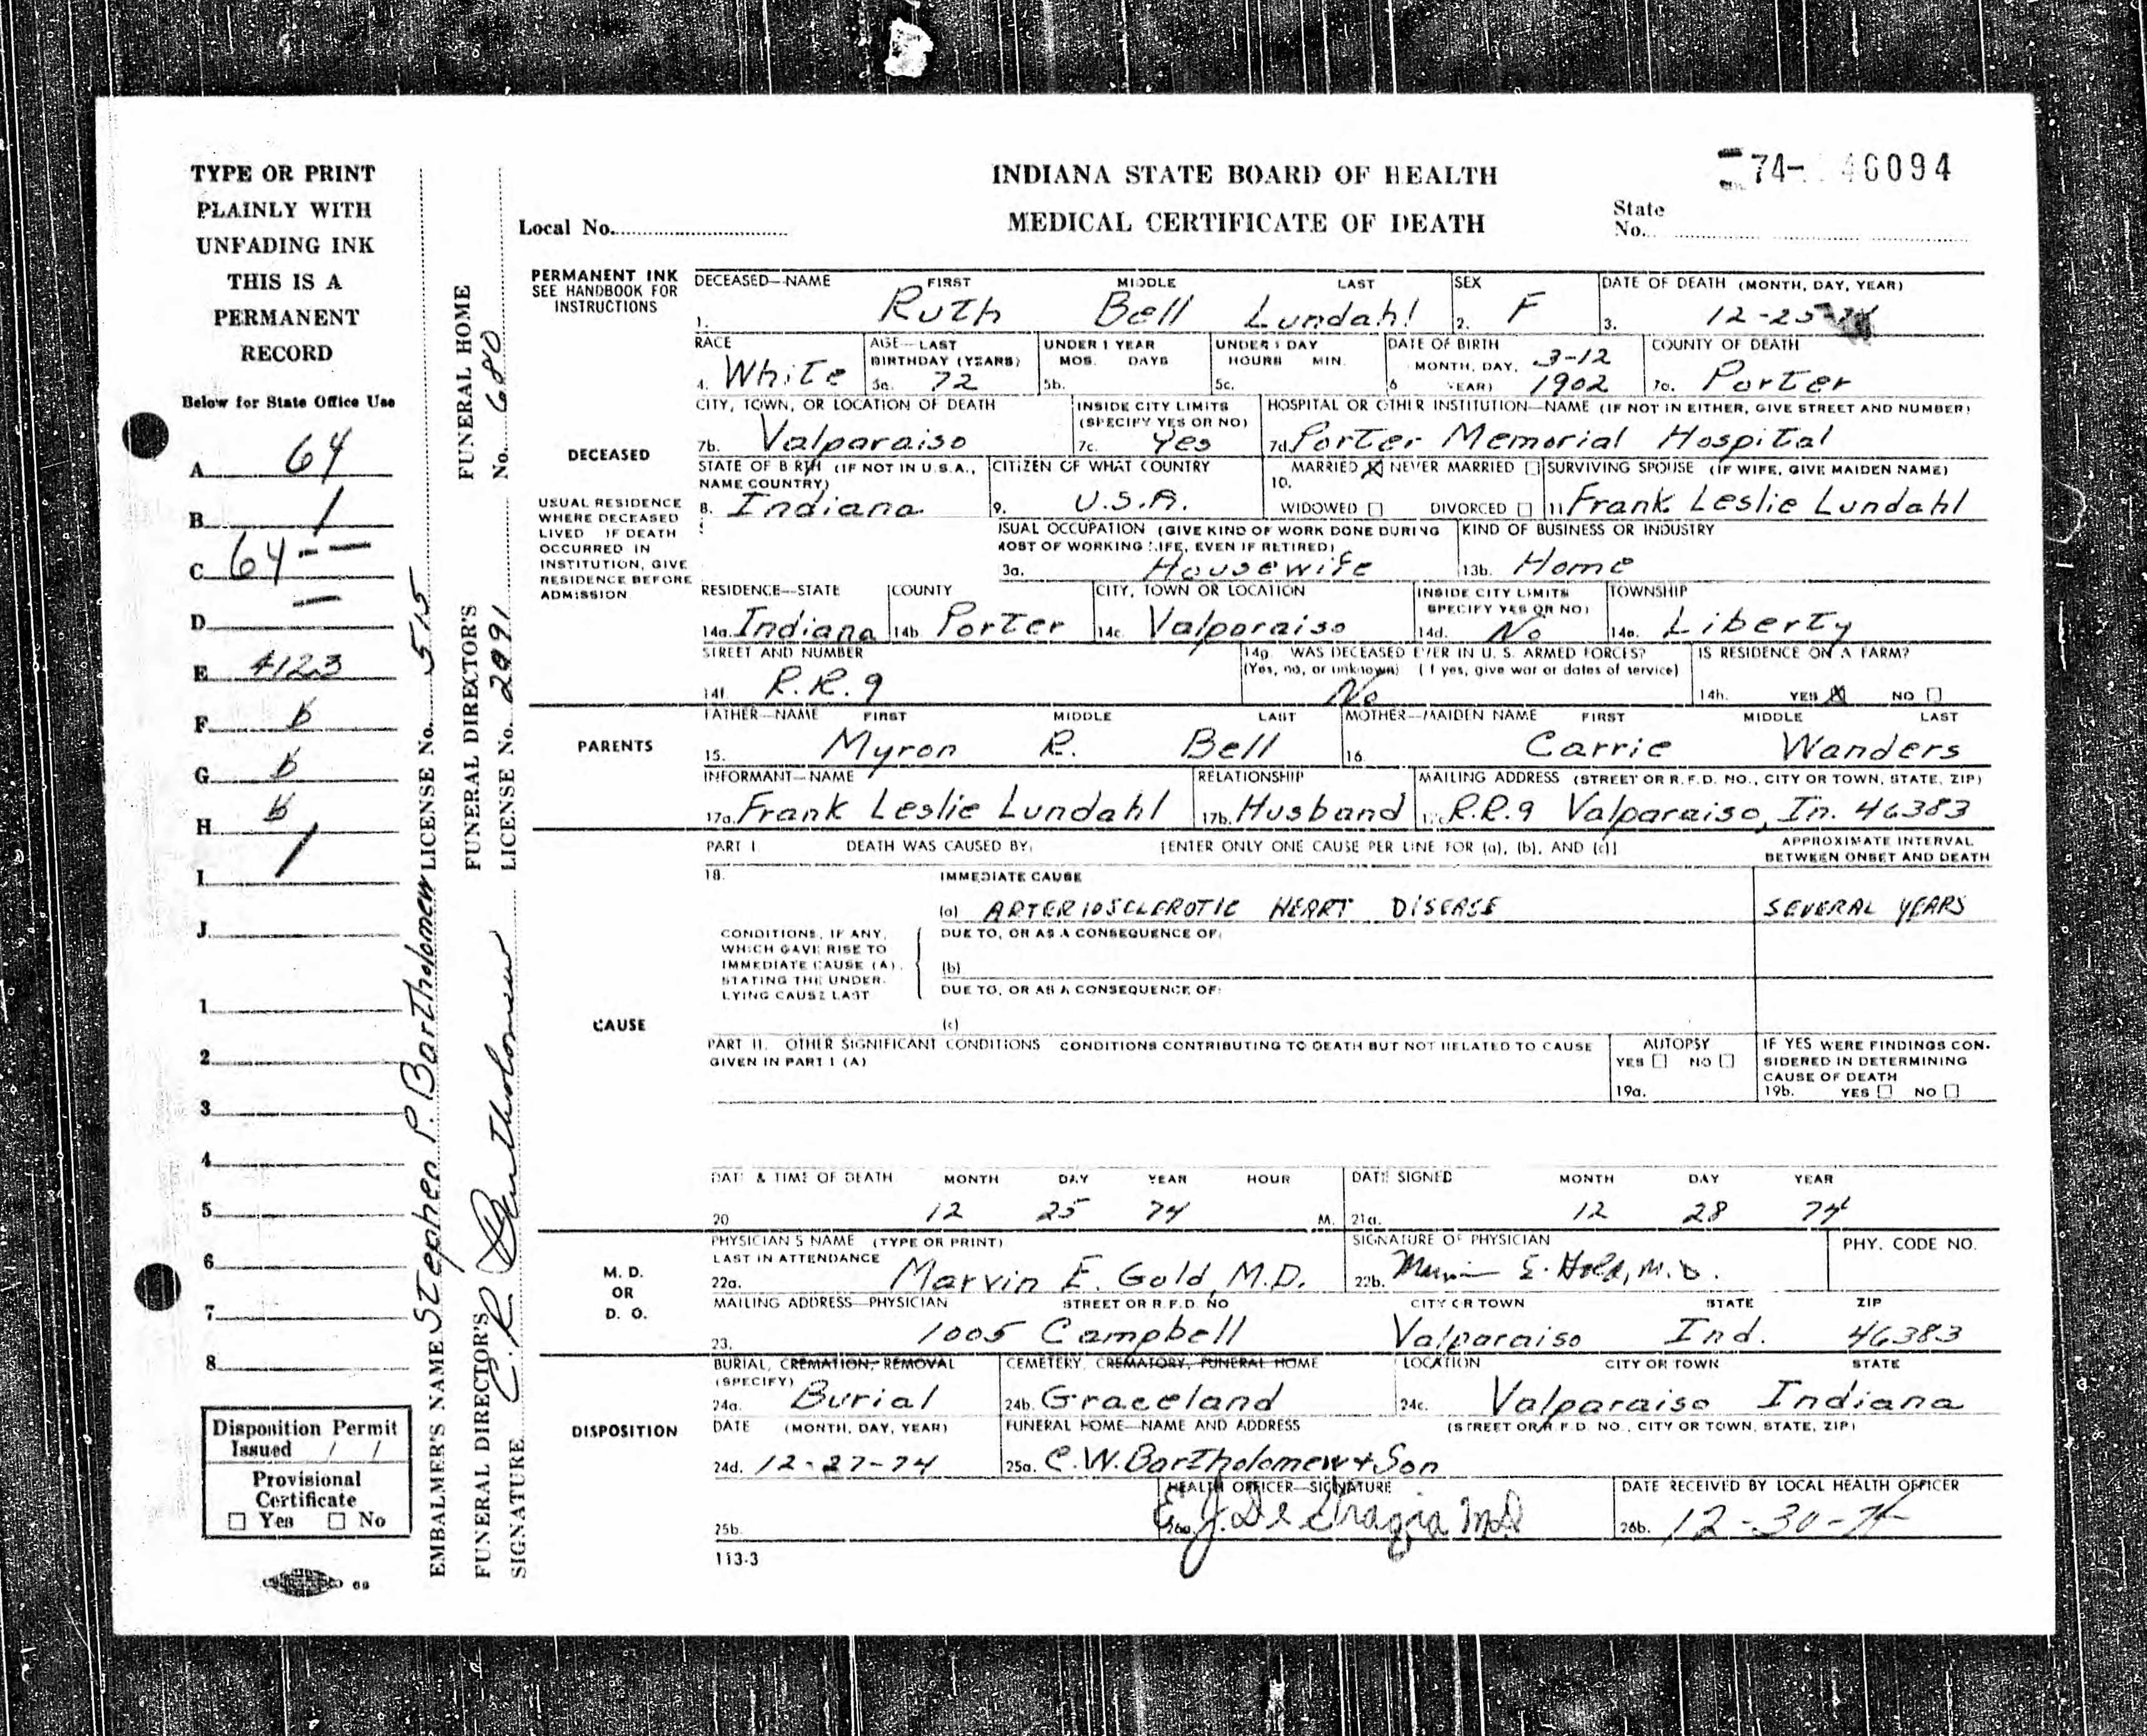 TYPE OR PRINT
PLAINLY WITH
UNFADING INK
THIS IS A
PERMANENT
RECORD
Below for State Office Use
A 64
B 1
C 64
D
E 4123
F
G
H
I
J
1
2
3
4
5
6
7
8
Disposition Permit
Issued / /
Provisional
Certificate
☐ Yes ☐ No
69
EMBALMER'S NAME Stephen P. Bartholomew LICENSE No. 515
FUNERAL DIRECTOR'S SIGNATURE C.R. Bartholomew
FUNERAL DIRECTOR'S LICENSE No. 2991
FUNERAL HOME No. 680
INDIANA STATE BOARD OF HEALTH
MEDICAL CERTIFICATE OF DEATH
Local No.
74- 46094
State
No.
PERMANENT INK
SEE HANDBOOK FOR
INSTRUCTIONS
DECEASED—NAME FIRST MIDDLE LAST SEX DATE OF DEATH (MONTH, DAY, YEAR)
1. Ruth Bell Lundahl 2. F 3. 12-25-74
RACE AGE—LAST BIRTHDAY (YEARS) UNDER 1 YEAR MOS. DAYS UNDER 1 DAY HOURS MIN. DATE OF BIRTH MONTH, DAY, YEAR) COUNTY OF DEATH
4. White 5a. 72 5b. 5c. 6 3-12 1902 7a. Porter
DECEASED
CITY, TOWN, OR LOCATION OF DEATH INSIDE CITY LIMITS (SPECIFY YES OR NO) HOSPITAL OR OTHER INSTITUTION—NAME (IF NOT IN EITHER, GIVE STREET AND NUMBER)
7b. Valparaiso 7c. Yes 7d. Porter Memorial Hospital
STATE OF BIRTH (IF NOT IN U.S.A., NAME COUNTRY) CITIZEN OF WHAT COUNTRY MARRIED ☒ NEVER MARRIED ☐ SURVIVING SPOUSE (IF WIFE, GIVE MAIDEN NAME)
8. Indiana 9. U.S.A. 10. WIDOWED ☐ DIVORCED ☐ 11 Frank Leslie Lundahl
USUAL RESIDENCE
WHERE DECEASED
LIVED IF DEATH
OCCURRED IN
INSTITUTION, GIVE
RESIDENCE BEFORE
ADMISSION
USUAL OCCUPATION (GIVE KIND OF WORK DONE DURING MOST OF WORKING LIFE, EVEN IF RETIRED) KIND OF BUSINESS OR INDUSTRY
3a. Housewife 13b. Home
RESIDENCE—STATE COUNTY CITY, TOWN OR LOCATION INSIDE CITY LIMITS SPECIFY YES OR NO) TOWNSHIP
14a. Indiana 14b Porter 14c. Valparaiso 14d. No 14e. Liberty
STREET AND NUMBER 14g. WAS DECEASED EVER IN U. S. ARMED FORCES? (Yes, no, or unknown) (If yes, give war or dates of service) IS RESIDENCE ON A FARM?
14f. R.R.9 No 14h. YES ☒ NO ☐
PARENTS
FATHER—NAME FIRST MIDDLE LAST MOTHER—MAIDEN NAME FIRST MIDDLE LAST
15. Myron R. Bell 16 Carrie Wanders
INFORMANT—NAME RELATIONSHIP MAILING ADDRESS (STREET OR R.F.D. NO., CITY OR TOWN, STATE, ZIP)
17a. Frank Leslie Lundahl 17b. Husband 17c. R.R.9 Valparaiso, In. 46383
CAUSE
PART I DEATH WAS CAUSED BY: [ENTER ONLY ONE CAUSE PER LINE FOR (a), (b), AND (c)] APPROXIMATE INTERVAL BETWEEN ONSET AND DEATH
18. IMMEDIATE CAUSE
(a) ARTERIOSCLEROTIC HEART DISEASE SEVERAL YEARS
CONDITIONS, IF ANY,
WHICH GAVE RISE TO
IMMEDIATE CAUSE (A),
STATING THE UNDER-
LYING CAUSE LAST
DUE TO, OR AS A CONSEQUENCE OF:
(b)
DUE TO, OR AS A CONSEQUENCE OF:
(c)
PART II. OTHER SIGNIFICANT CONDITIONS CONDITIONS CONTRIBUTING TO DEATH BUT NOT RELATED TO CAUSE GIVEN IN PART I (A)
AUTOPSY YES ☐ NO ☐ 19a.
IF YES WERE FINDINGS CONSIDERED IN DETERMINING CAUSE OF DEATH 19b. YES ☐ NO ☐
DATE & TIME OF DEATH MONTH DAY YEAR HOUR DATE SIGNED MONTH DAY YEAR
20 12 25 74 M. 21a. 12 28 74
M. D.
OR
D. O.
PHYSICIAN'S NAME (TYPE OR PRINT) LAST IN ATTENDANCE SIGNATURE OF PHYSICIAN PHY. CODE NO.
22a. Marvin E. Gold, M.D. 22b. Marvin E. Gold, M.D.
MAILING ADDRESS—PHYSICIAN STREET OR R.F.D. NO CITY OR TOWN STATE ZIP
23. 1005 Campbell Valparaiso Ind. 46383
DISPOSITION
BURIAL, CREMATION, REMOVAL (SPECIFY) CEMETERY, CREMATORY, FUNERAL HOME LOCATION CITY OR TOWN STATE
24a. Burial 24b. Graceland 24c. Valparaiso Indiana
DATE (MONTH, DAY, YEAR) FUNERAL HOME—NAME AND ADDRESS (STREET OR R.F.D. NO., CITY OR TOWN, STATE, ZIP)
24d. 12-27-74 25a. C.W. Bartholomew & Son
HEALTH OFFICER—SIGNATURE DATE RECEIVED BY LOCAL HEALTH OFFICER
25b. 26a. 26b. 12-30-74
113-3